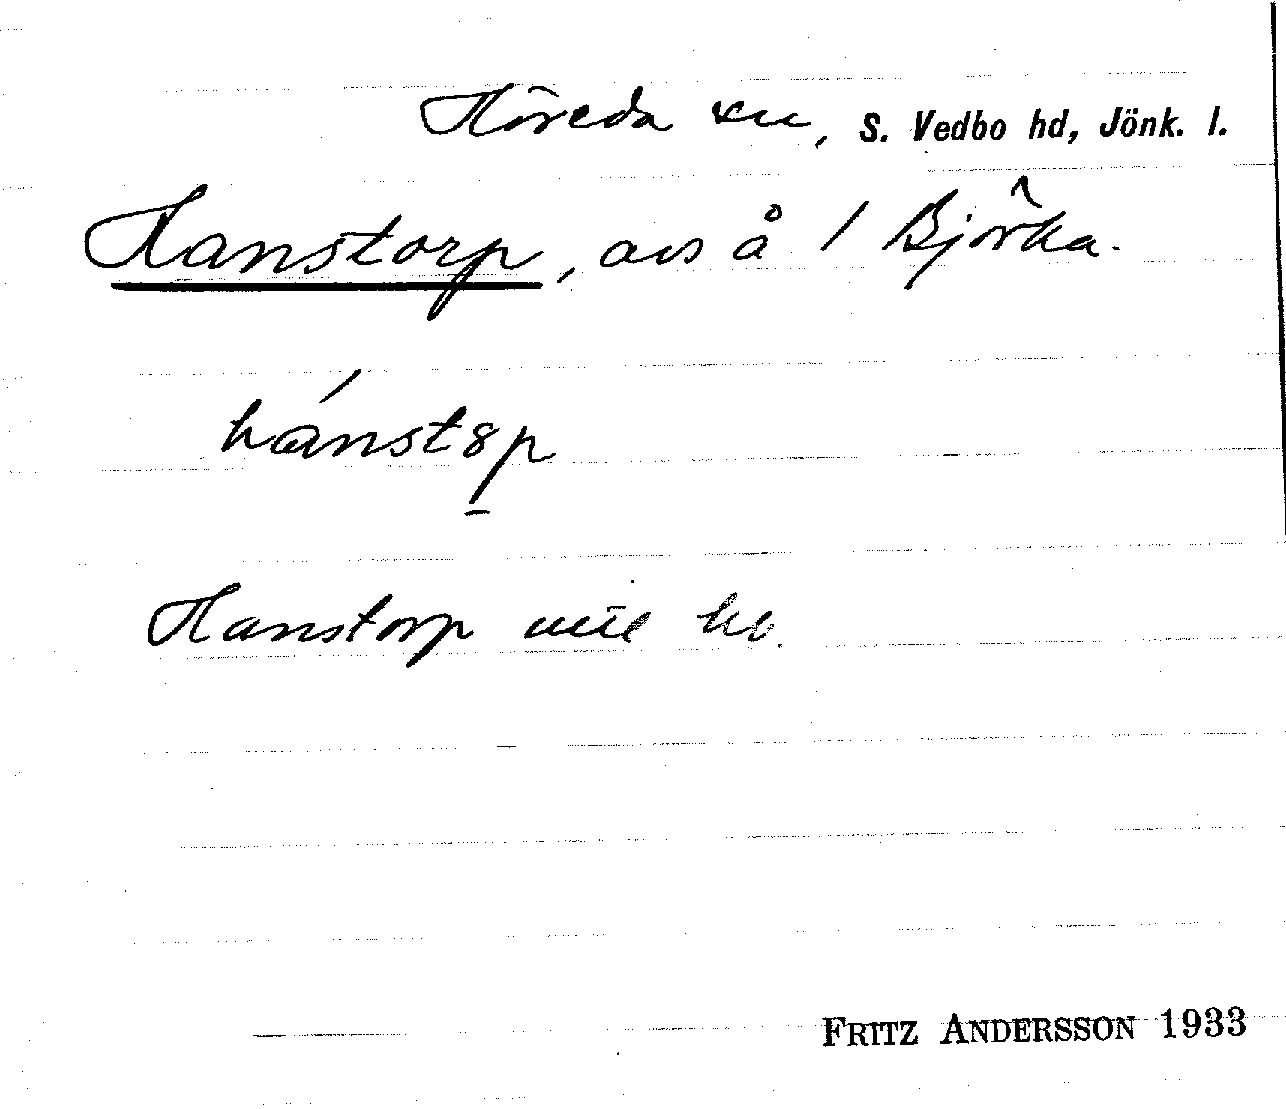 Höreda sn, S. Vedbo hd, Jönk. l.
Hanstorp, avs å 1 Björka.
hánstɵp
Hanstorp mil kb.
FRITZ ANDERSSON 1933